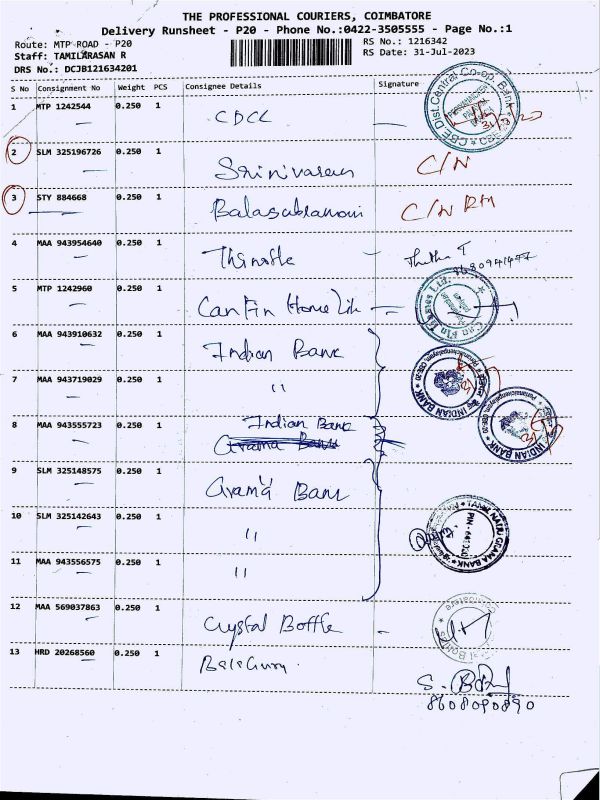 THE PROFESSIONAL COURIERS, COIMBATORE
Delivery Runsheet - P20 - Phone No.:0422-3505555 - Page No.:1
Route: MTP ROAD - P20 RS No.: 1216342
Staff: TAMILARASAN R RS Date: 31-Jul-2023
DRS No.: DCJB121634201
S No Consignment No Weight PCS Consignee Details Signature
1 MTP 1242544 0.250 1 CDCC
2 SLM 325196726 0.250 1 Srinivasan C/N
3 STY 884668 0.250 1 Balasubramani C/N RM
4 MAA 943954640 0.250 1
5 MTP 1242960 0.250 1 Can Fin Home
6 MAA 943910632 0.250 1 Indian Bank
7 MAA 943719029 0.250 1 "
8 MAA 943555723 0.250 1 Indian Bank
9 SLM 325148575 0.250 1 Grama Bank
10 SLM 325142643 0.250 1 "
11 MAA 943556575 0.250 1 "
12 MAA 569037863 0.250 1 Crystal Bottle
13 HRD 20268560 0.250 1 Balaguru
8608090890
CBE Dist.Central Co-op. Bank
INDIAN BANK
INDIAN BANK
TAMIL NADU GRAMA BANK